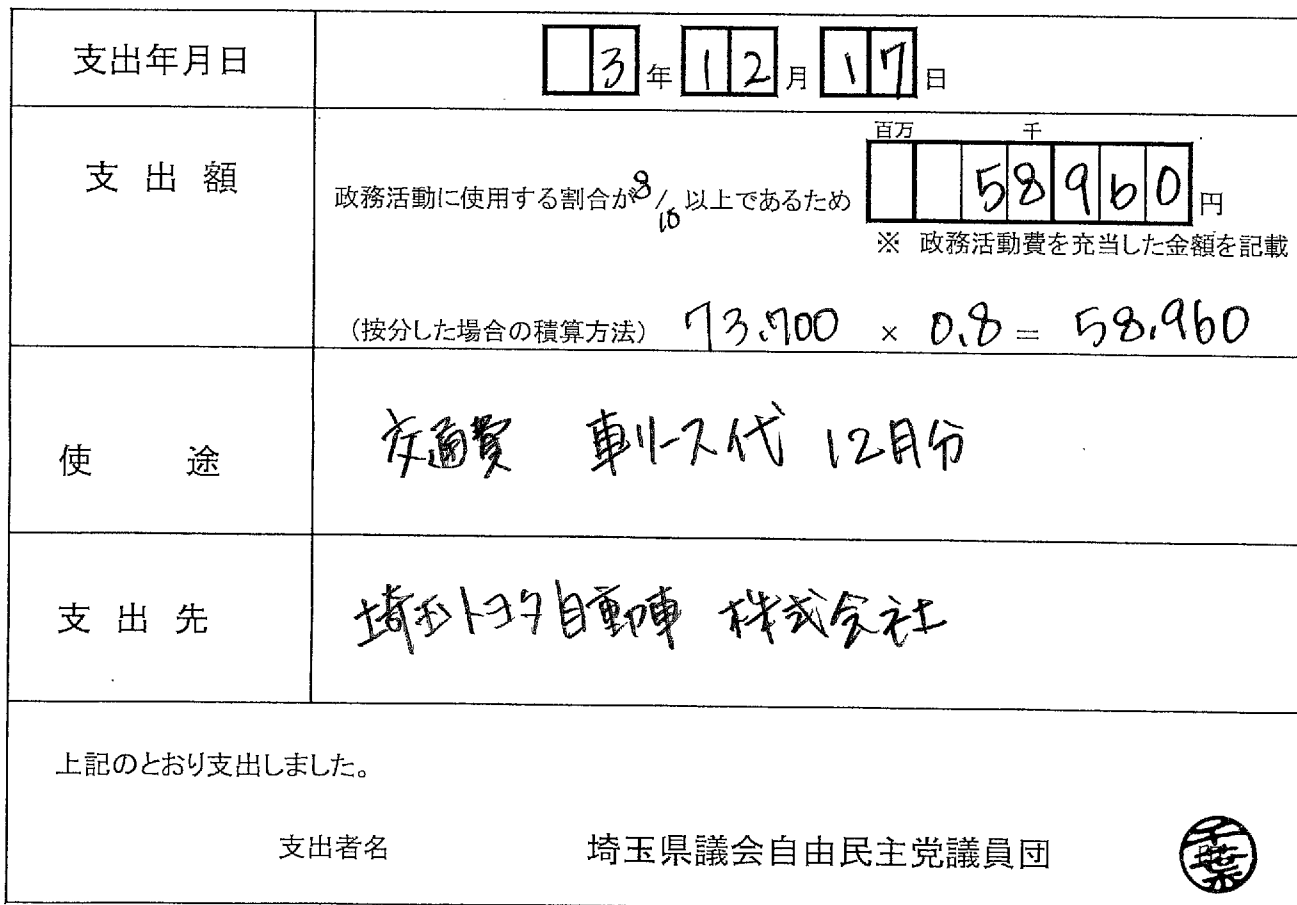 支出年月日 3年12月17日
百万 千
支出額 政務活動に使用する割合が8/10以上であるため 58960円
※ 政務活動費を充当した金額を記載
(按分した場合の積算方法) 73,700 × 0.8 = 58,960
使途 交通費 車リース代 12月分
支出先 埼玉トヨタ自動車 株式会社
上記のとおり支出しました。
支出者名 埼玉県議会自由民主党議員団 千葉